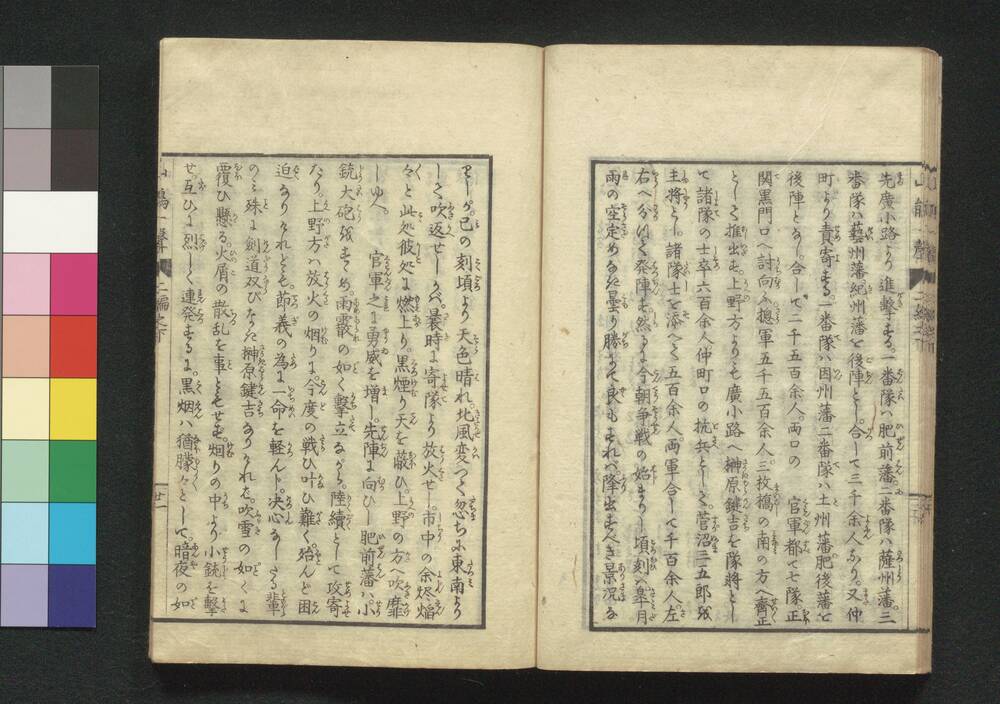 先廣小路より進撃する。一番隊ハ肥前藩二番隊ハ薩州藩。三
番隊ハ藝州藩紀州藩を後陣とし。合して三千余人なり。又仲
町より責寄する。一番隊ハ因州藩二番隊ハ土州藩肥後藩を
後陣となし。合して二千五百余人。両口の　官軍都て七隊正
関黒門口へ討向ふ。揔軍五千五百余人。三枚橋の南の方へ齊正
として推出せ。上野方よりも廣小路へ榊原鍵吉を隊将とし
て諸隊の士卒六百余人仲町口の抗兵として。菅沼三五郎を
主将とし。諸隊士を添へて五百余人。両軍合して千百余人左
右へ分けて発陣す。然るに今朝争戦の始まりし頃刻ハ皐月
雨の空定めなき曇り勝にて。良もすれバ降出すべき景况な
せしが。己の刻頃より天色晴れ。北風変へて忽ちに東南より
して吹返せしかバ。曩時に寄隊より放火せし市中の余烬熖
々と此処彼処に燃上り。黒煙り天を蔽ひ上野の方へ吹靡
しゆへ。　官軍之に勇威を増し。先陣に向ひし肥前藩ハ小
銃大砲をすゝめ。雨霰の如く撃立ながら。陸續として攻寄
たり。上野方ハ放火の烟りに。今度の戦ひ叶ひ難く。殆んと困
迫なりけれども。節義の為に一命を軽んじ。决心なしたる輩
のミ殊に剣道双びなき榊原鍵吉なりけれバ。吹雪の如くに
覆ひ懸る。火屑の散乱を事ともせず。烟りの中より小銃を撃
せ。互ひに烈しく連発するに。黒烟ハ猶朦々として。暗夜の如
山鵑一聲　二編之下
廿一